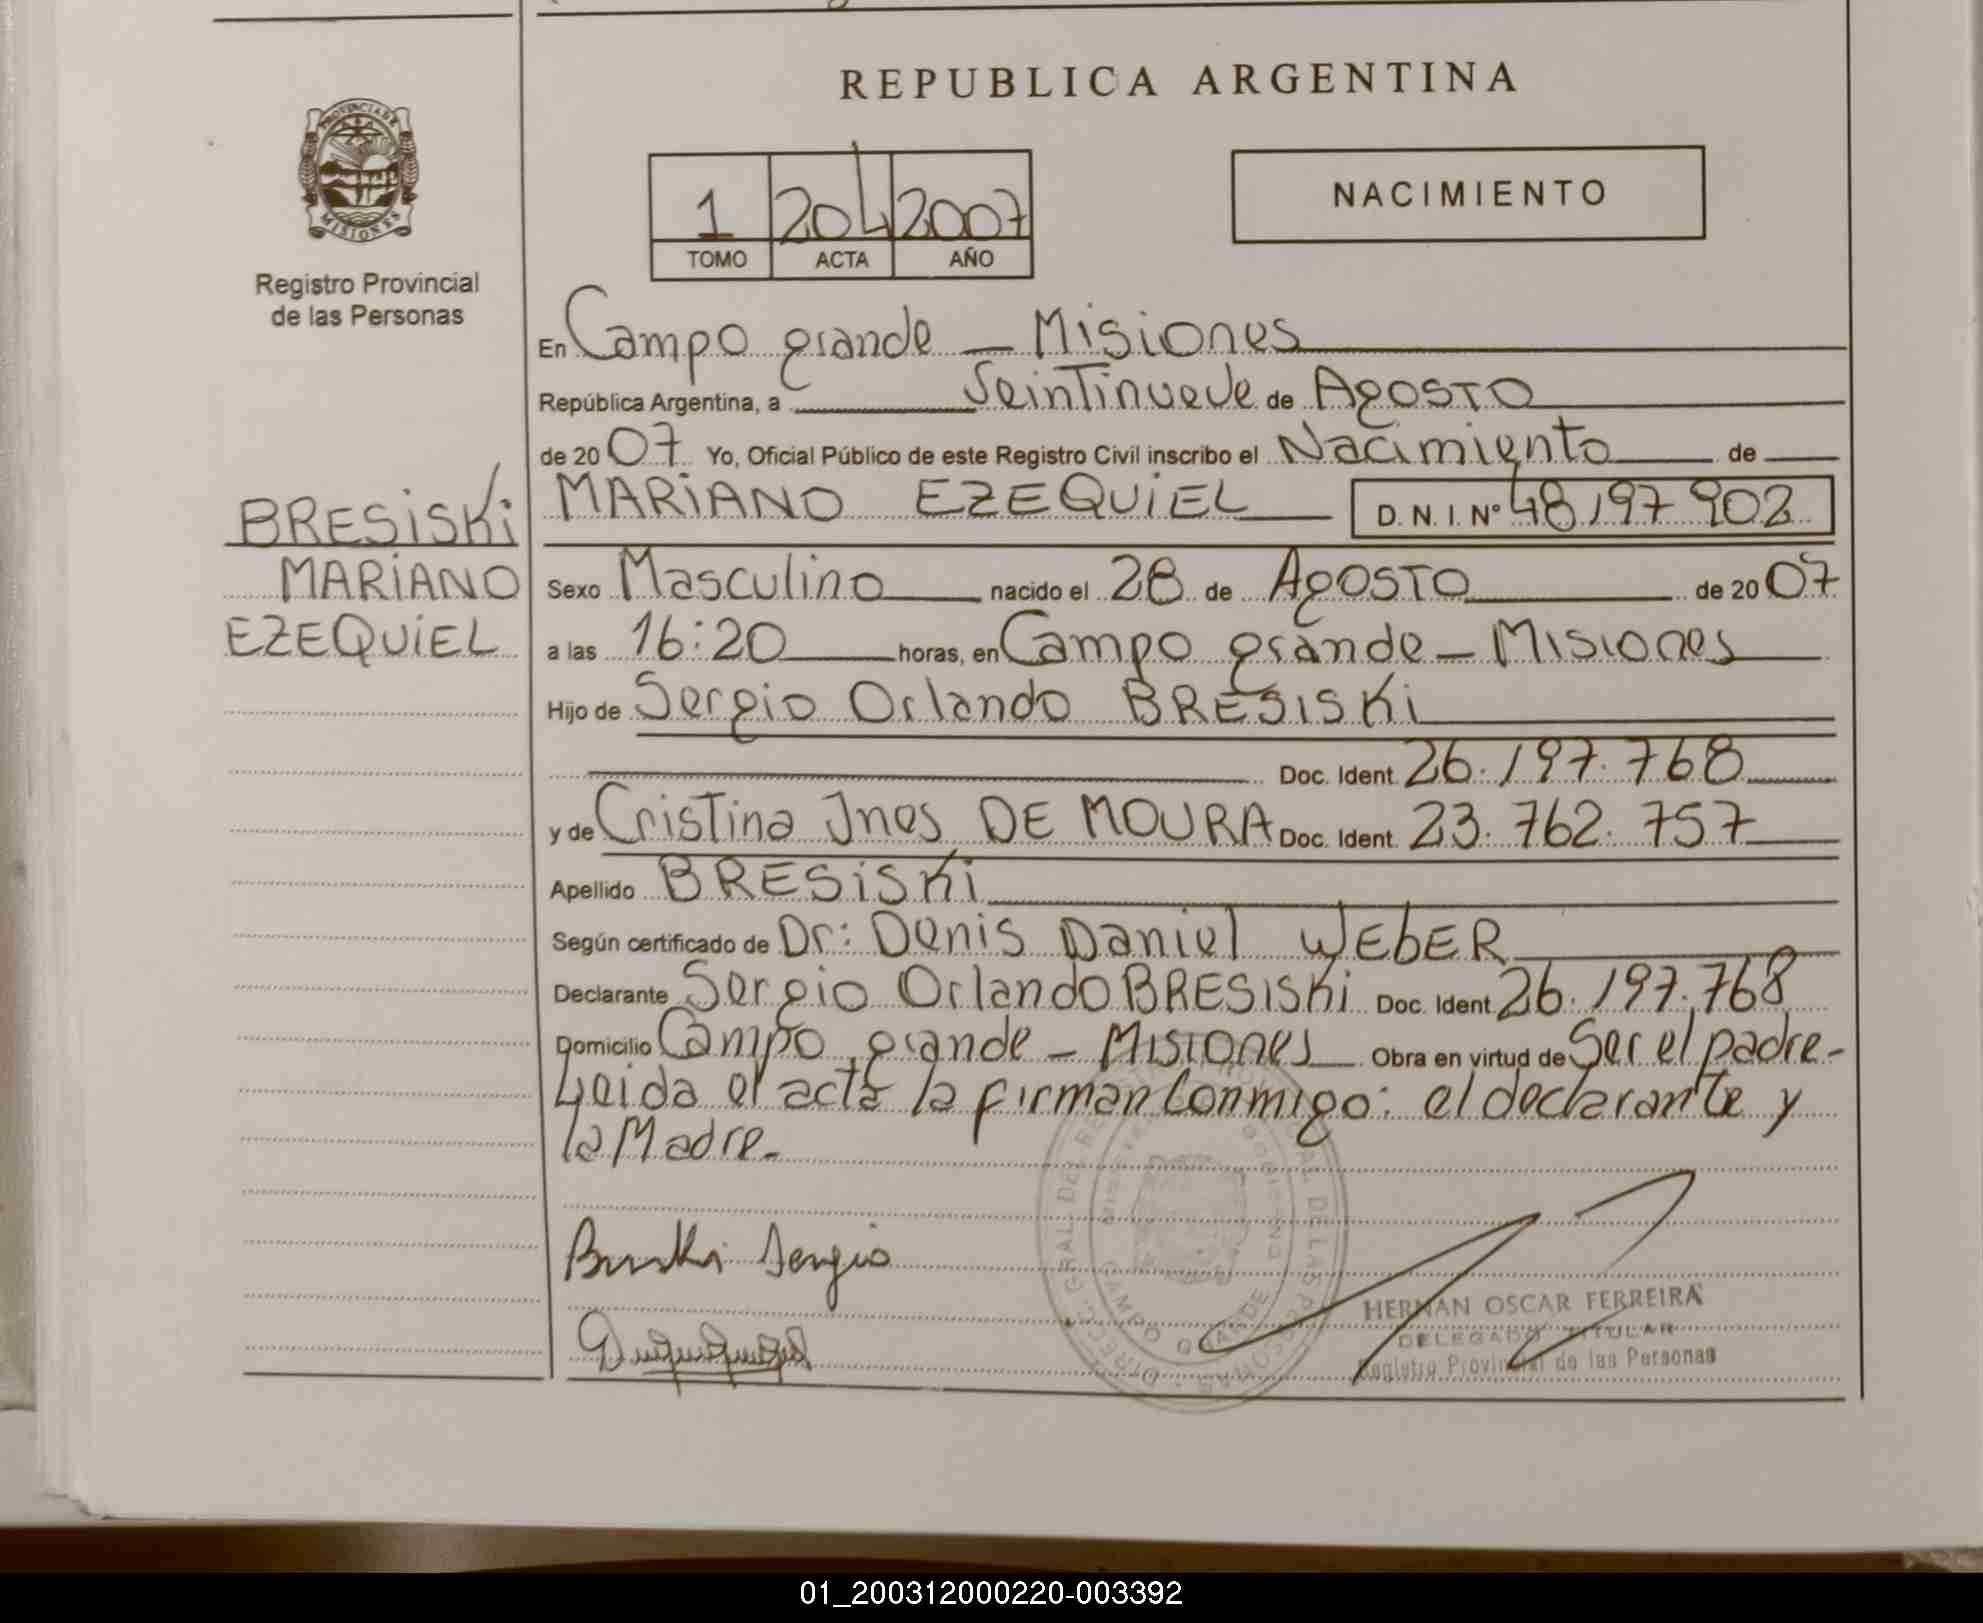 REPUBLICA ARGENTINA
PROVINCIA DE
MISIONES
Registro Provincial
de las Personas
1 204 2007
TOMO ACTA AÑO
NACIMIENTO
En Campo grande - Misiones
República Argentina, a Veintinueve de Agosto
de 2007 Yo, Oficial Público de este Registro Civil inscribo el Nacimiento de
BRESiSKi
MARiANO
EZEQUiEL
MARiANO EZEQUiEL D. N. I. Nº 48,197 902
Sexo Masculino nacido el 28 de Agosto de 2007
a las 16:20 horas, en Campo grande - Misiones
Hijo de Sergio Orlando BRESISKi
Doc. Ident. 26.197.768
y de Cristina Ines DE MOURA Doc. Ident. 23.762.757
Apellido BRESiSKi
Según certificado de Dr: Denis Daniel WEbER
Declarante Sergio Orlando BRESISKi Doc. Ident. 26.197.768
Domicilio Campo grande - Misiones Obra en virtud de Ser el padre-
Leida el acta la firman Conmigo: el declarante y
la Madre.
Sergio
CAMPO GRANDE
HERNAN OSCAR FERREIRA
DELEGADO TITULAR
Registro Provincial de las Personas
01_200312000220-003392